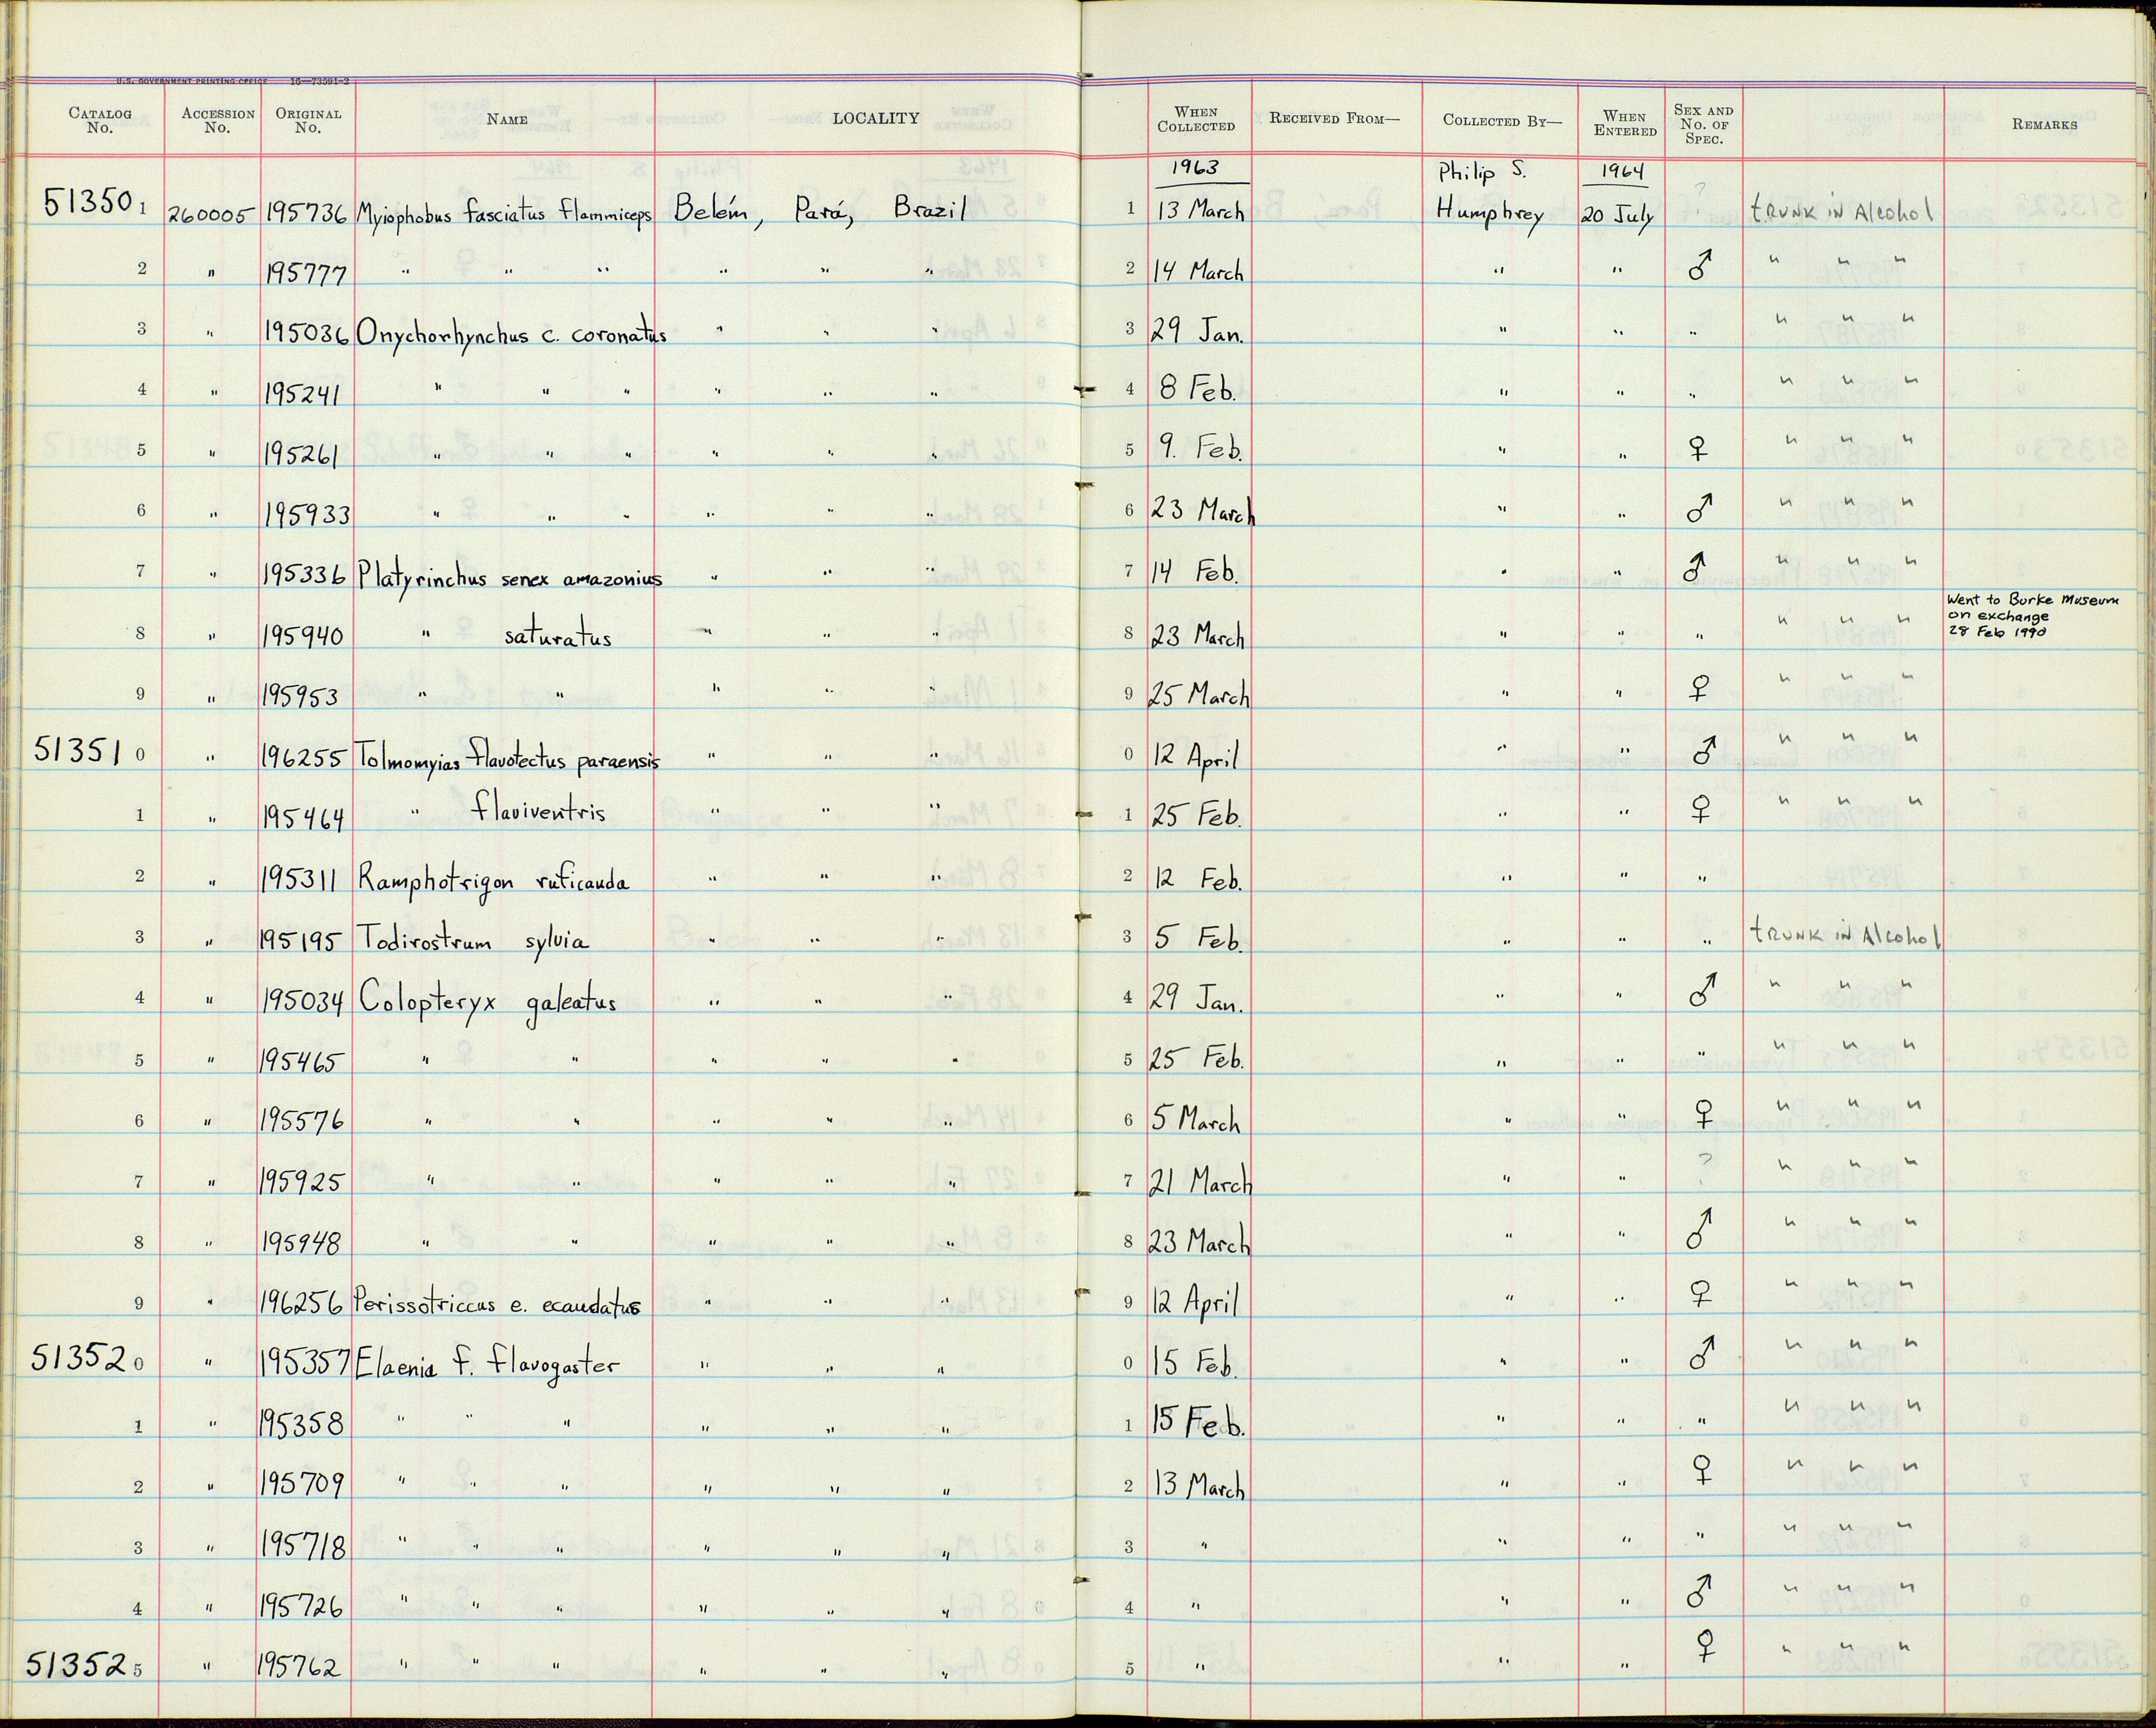 U.S. GOVERNMENT PRINTING OFFICE 16—73591-2
CATALOG No. ACCESSION No. ORIGINAL No. NAME LOCALITY WHEN COLLECTED RECEIVED FROM— COLLECTED BY— WHEN ENTERED SEX AND No. OF SPEC. REMARKS
1963 Philip S. 1964
513501 260005 195736 Myiophobus fasciatus flammiceps Belém, Pará, Brazil 1 13 March Humphrey 20 July ? trunk in Alcohol
2 " 195777 " " " " " " 2 14 March " " ♂ " " "
3 " 195036 Onychorhynchus c. coronatus " " " 3 29 Jan. " " " " " "
4 " 195241 " " " " " " 4 8 Feb. " " " " " "
5 " 195261 " " " " " " 5 9. Feb. " " ♀ " " "
6 " 195933 " " " " " " 6 23 March " " ♂ " " "
7 " 195336 Platyrinchus senex amazonius " " " 7 14 Feb. " " ♂ " " "
8 " 195940 " saturatus " " " 8 23 March " " " " " " Went to Burke Museum on exchange 28 Feb 1990
9 " 195953 " " " " " 9 25 March " " ♀ " " "
513510 " 196255 Tolmomyias flavotectus paraensis " " " 0 12 April " " ♂ " " "
1 " 195464 " flaviventris " " " 1 25 Feb. " " ♀ " " "
2 " 195311 Ramphotrigon ruficauda " " " 2 12 Feb. " " "
3 " 195195 Todirostrum sylvia " " " 3 5 Feb. " " " trunk in Alcohol
4 " 195034 Colopteryx galeatus " " " 4 29 Jan. " " ♂ " " "
5 " 195465 " " " " " 5 25 Feb. " " " " " "
6 " 195576 " " " " " 6 5 March " " ♀ " " "
7 " 195925 " " " " " 7 21 March " " ? " " "
8 " 195948 " " " " " 8 23 March " " ♂ " " "
9 " 196256 Perissotriccus e. ecaudatus " " " 9 12 April " " ♀ " " "
513520 " 195357 Elaenia f. flavogaster " " " 0 15 Feb. " " ♂ " " "
1 " 195358 " " " " " " 1 15 Feb. " " " " " "
2 " 195709 " " " " " " 2 13 March " " ♀ " " "
3 " 195718 " " " " " " 3 " " " " " " "
4 " 195726 " " " " " " 4 " " " ♂ " " "
513525 " 195762 " " " " " " 5 " " " ♀ " " "